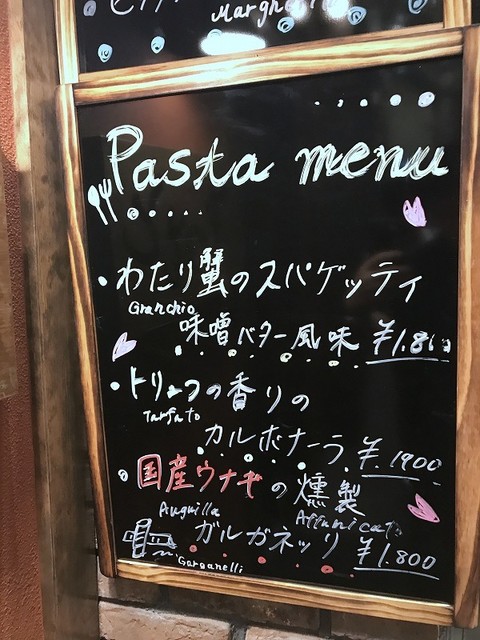 Pasta menu
・わたり蟹のスパゲッティ
Granchio
味噌バター風味 ¥1.800
・トリュフの香りの
Tarfuto
カルボナーラ ¥.1900
国産ウナギの燻製
Anguilla Affumicato
ガルガネッリ ¥1.800
Garganelli